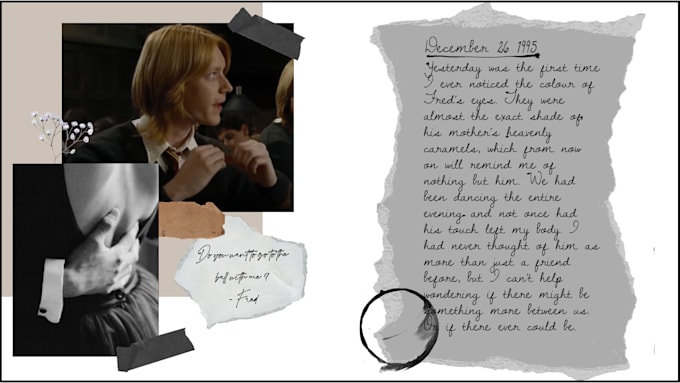 Do you want to go to the
ball with me?
- Fred
December 26 1995
Yesterday was the first time
I ever noticed the colour of
Fred's eyes. They were
almost the exact shade of
his mother's heavenly
caramels, which from now
on will remind me of
nothing but him. We had
been dancing the entire
evening and not once had
his touch left my body. I
had never thought of him as
more than just a friend
before, but I can't help
wondering if there might be
something more between us.
Or if there ever could be.